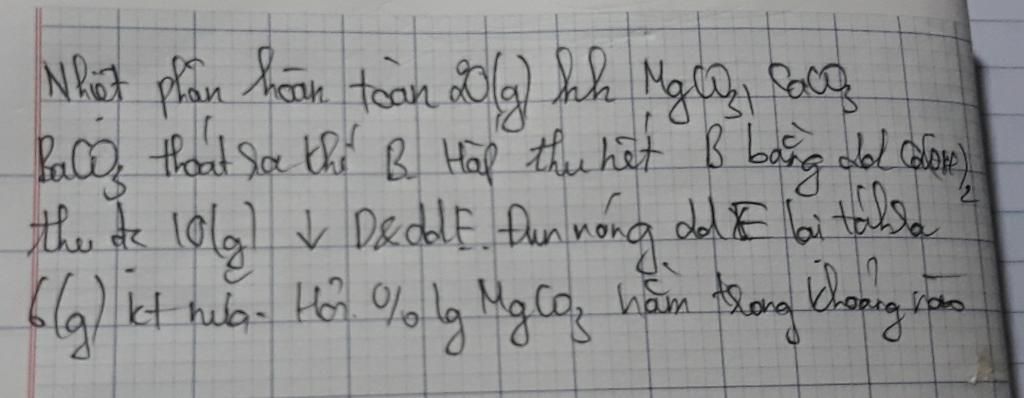 Nhiệt phân hoàn toàn 20(g) hh MgCO3, CaCO3
BaCO3 thoát ra khí B. Hấp thu hết B bằng dd Ca(OH)2
thu đc 10(g) ↓ D & ddE. Đun nóng dd E lại tạo ra
6(g) kt nữa. Hỏi % lg MgCO3 nằm trong khoảng nào